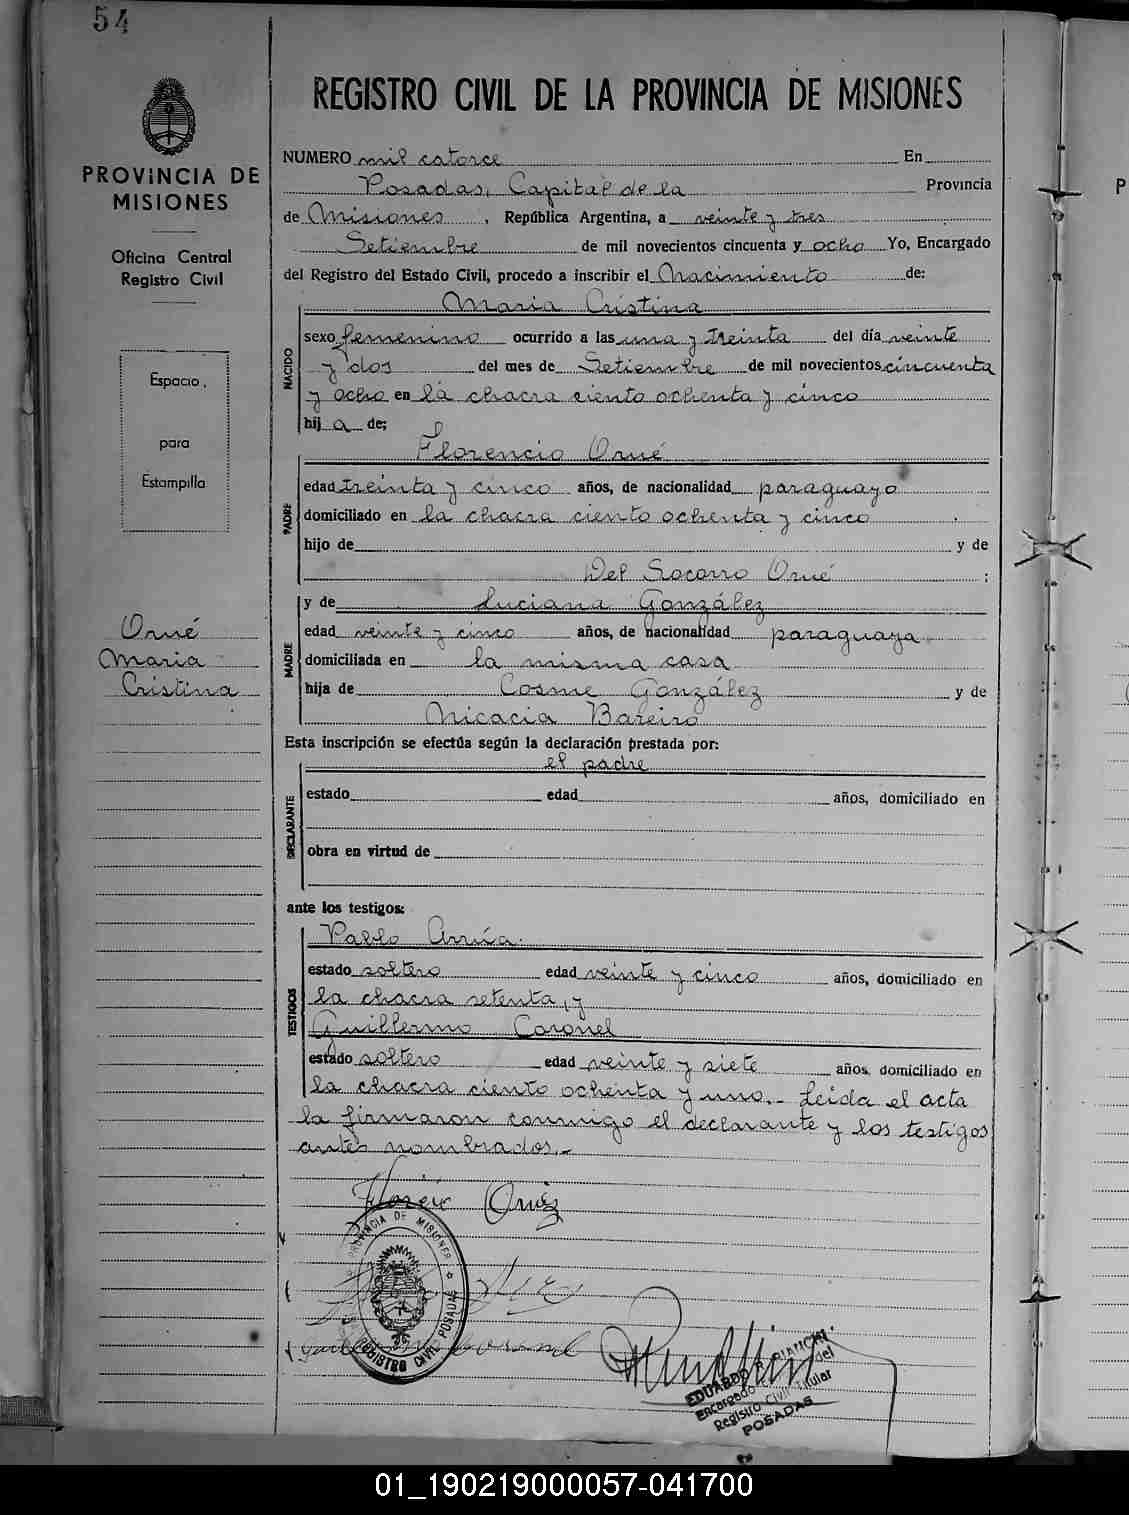 54
REGISTRO CIVIL DE LA PROVINCIA DE MISIONES
PROVINCIA DE
MISIONES
Oficina Central
Registro Civil
Espacio,
para
Estampilla
Orué
Maria
Cristina
NUMERO mil catorce En
Posadas, Capital de la Provincia
de Misiones, República Argentina, a veinte y tres
Setiembre de mil novecientos cincuenta y ocho Yo, Encargado
del Registro del Estado Civil, procedo a inscribir el Nacimiento de:
Maria Cristina
NACIDO
sexo femenino ocurrido a las una y treinta del día veinte
y dos del mes de Setiembre de mil novecientos cincuenta
y ocho en la chacra ciento ochenta y cinco
hij a de;
Florencio Orué
PADRE
edad treinta y cinco años, de nacionalidad paraguayo
domiciliado en la chacra ciento ochenta y cinco
hijo de y de
Del Socorro Orué ;
y de Luciana González
MADRE
edad veinte y cinco años, de nacionalidad paraguaya
domiciliada en la misma casa
hija de Cosme González y de
Nicacia Bareiro
Esta inscripción se efectúa según la declaración prestada por:
el padre
DECLARANTE
estado edad años, domiciliado en
obra en virtud de
ante los testigos:
Pablo Arrúa.
TESTIGOS
estado soltero edad veinte y cinco años, domiciliado en
la chacra setenta, y
Guillermo Coronel
estado soltero edad veinte y siete años, domiciliado en
la chacra ciento ochenta y uno.- Leida el acta
la firmaron conmigo el declarante y los testigos
antes nombrados.-
PROVINCIA DE MISIONES
REGISTRO CIVIL POSADAS
EDUARDO R. BIANCHI
Encargado del
Registro Civil Titular
POSADAS
01_190219000057-041700